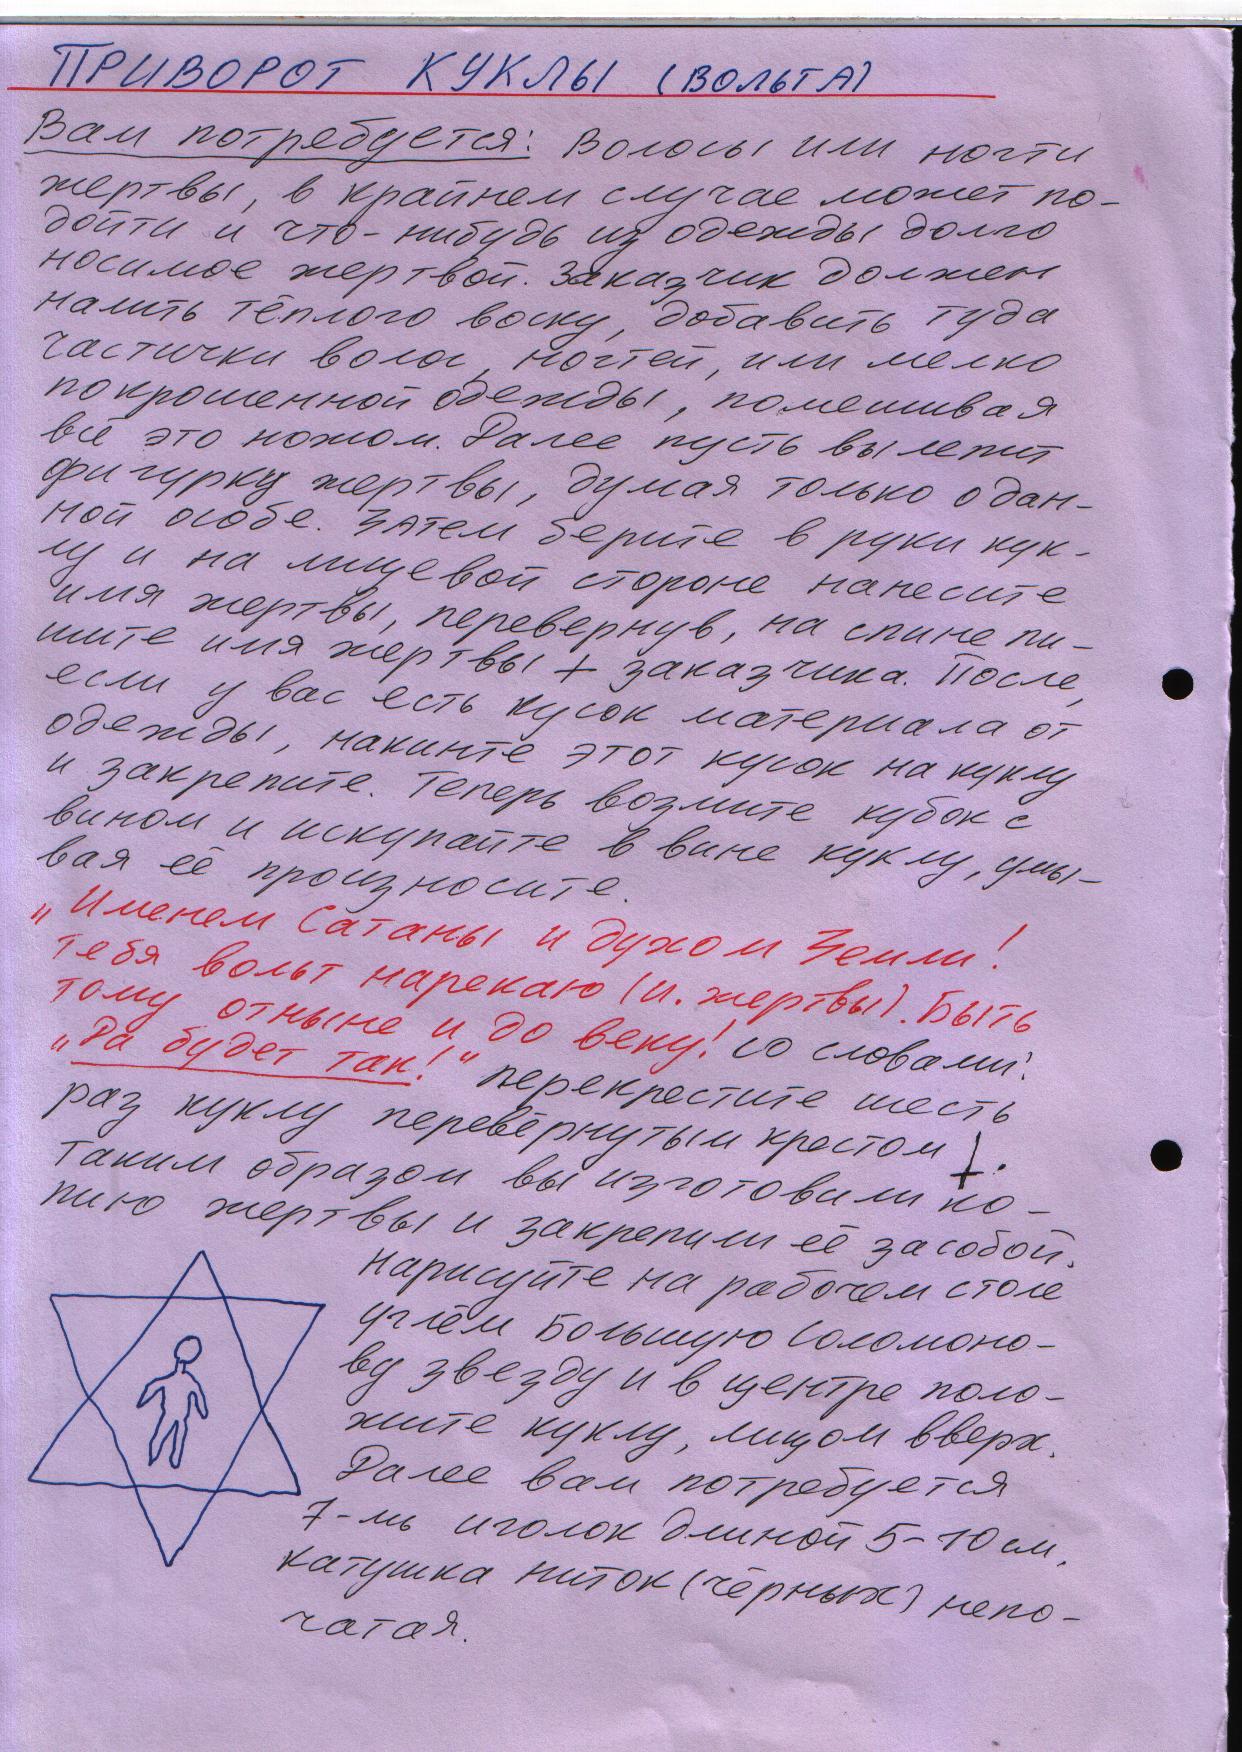 ПРИВОРОТ КУКЛЫ (ВОЛЬТА)
Вам потребуется: Волосы или ногти
жертвы, в крайнем случае может по-
дойти и что-нибудь из одежды долго
носимое жертвой. Заказчик должен
налить тёплого воску, добавить туда
частички волос, ногтей, или мелко
покрошенной одежды, помешивая
всё это ножом. Далее пусть вылепит
фигурку жертвы, думая только о дан-
ной особе. Затем берите в руки кук-
лу и на лицевой стороне нанесите
имя жертвы, перевернув, на спине пи-
шите имя жертвы + заказчика. После,
если у вас есть кусок материала от
одежды, накиньте этот кусок на куклу
и закрепите. Теперь возмите кубок с
вином и искупайте в вине куклу, умы-
вая её произносите.
„Именем Сатаны и духом Земли!
тебя вольт нарекаю (и. жертвы). Быть
тому отныне и до веку! со словами:
„Да будет так!" перекрестите шесть
раз куклу перевёрнутым крестом.
Таким образом вы изготовили ко-
пию жертвы и закрепили её засобой.
Нарисуйте на рабочем столе
углём Большую Соломоно-
ву звезду и в центре поло-
жите куклу, лицом вверх.
Далее вам потребуется
7-мь иголок длиной 5-10 см.
Катушка ниток (чёрных) непо-
чатая.